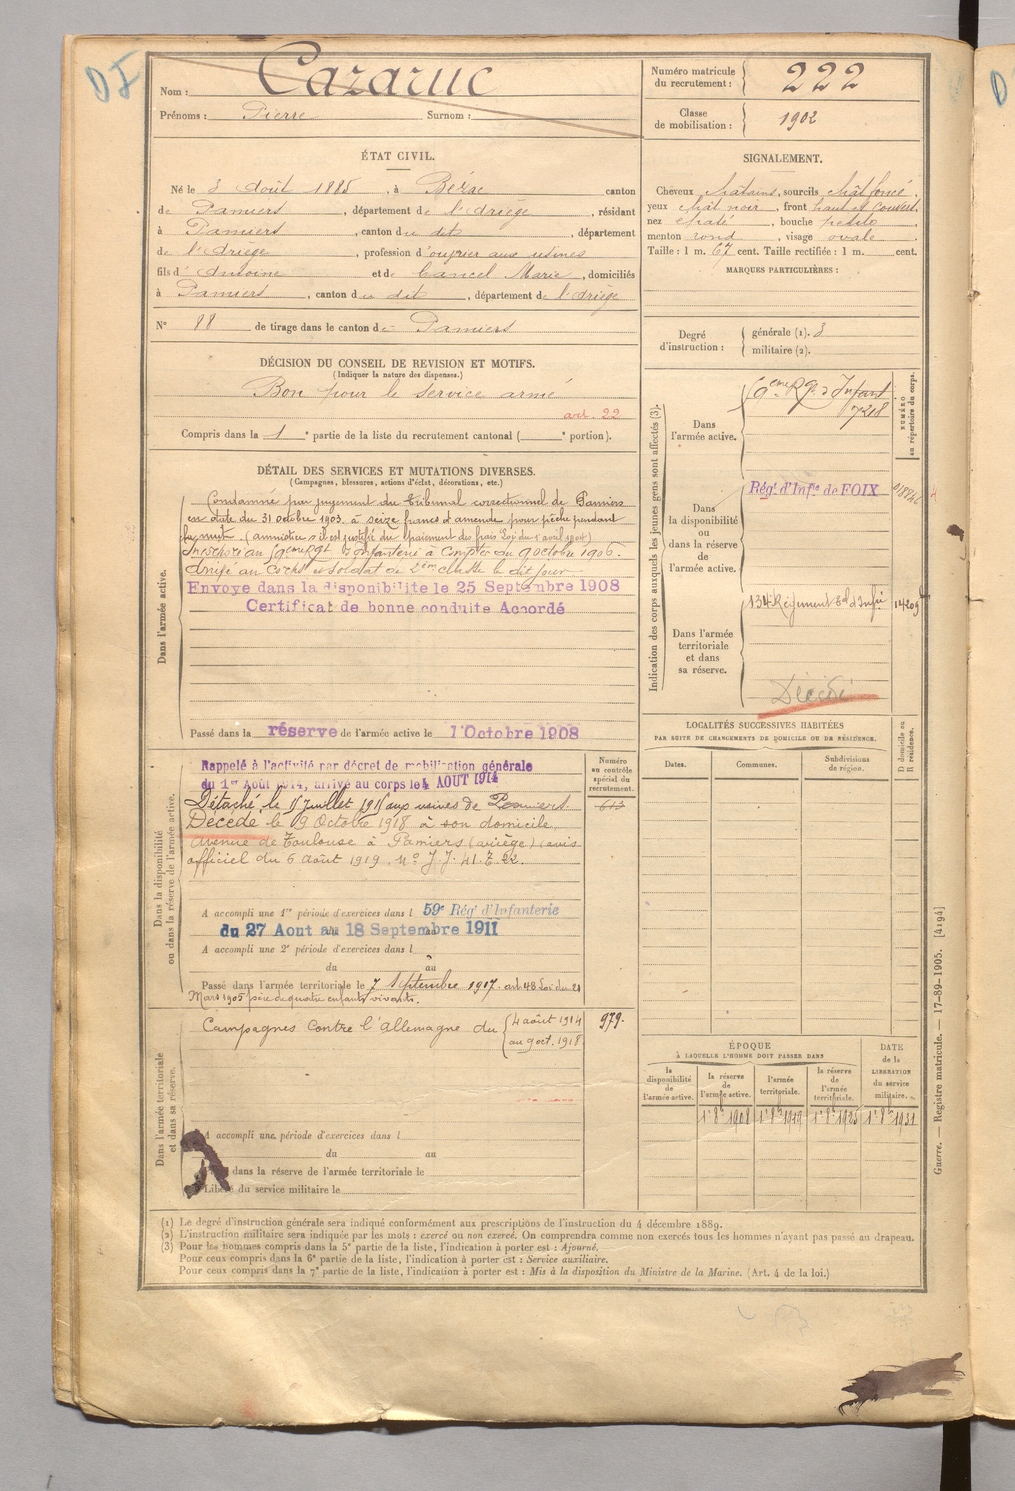 DJ
Nom : Cazaruc
Prénoms : Pierre Surnom :
Numéro matricule du recrutement : 222
Classe de mobilisation : 1902
ÉTAT CIVIL.
Né le 3 Août 1885, à Bézac canton
de Pamiers, département de l'Ariège, résidant
à Pamiers, canton du dit, département
de l'Ariège, profession d'ouvrier aux usines
fils d' Antoine et de Cancel Marie, domiciliés
à Pamiers, canton du dit, département de l'Ariège
N° 88 de tirage dans le canton de Pamiers
SIGNALEMENT.
Cheveux châtains, sourcils chât foncé,
yeux chât noir, front haut et couvert,
nez épaté, bouche petite
menton rond, visage ovale
Taille : 1 m. 67 cent. Taille rectifiée : 1 m. cent.
MARQUES PARTICULIÈRES :
Degré d'instruction : générale (1). 3
militaire (2).
DÉCISION DU CONSEIL DE REVISION ET MOTIFS.
(Indiquer la nature des dispenses.)
Bon pour le service armé
art. 22
Compris dans la 1e partie de la liste du recrutement cantonal ( e portion).
DÉTAIL DES SERVICES ET MUTATIONS DIVERSES.
(Campagnes, blessures, actions d'éclat, décorations, etc.)
Dans l'armée active.
Condamné par jugement du Tribunal correctionnel de Pamiers
en date du 31 octobre 1903 à seize francs d'amende pour pêche pendant
la nuit. (amnistié s'il est justifié du paiement des frais Loi du 1 avril 1904)
Inscrit au 9eme Rgt d'Infanterie à compter du 9 octobre 1906.
dirigé au corps et soldat de 2ème classe le dit jour
Envoye dans la disponibilite le 25 Septembre 1908
Certificat de bonne conduite Accordé
Passé dans la réserve de l'armée active le 1 Octobre 1908
Indication des corps auxquels les jeunes gens sont affectés (3).
Dans l'armée active.
9eme Rgt d'Infant
7218
NUMÉRO au répertoire du corps.
Dans la disponibilité ou dans la réserve de l'armée active.
Régt d'Infie de FOIX
Dans l'armée territoriale et dans sa réserve.
134e Régiment tal d'Infie 14209
Décédé
LOCALITÉS SUCCESSIVES HABITÉES
PAR SUITE DE CHANGEMENTS DE DOMICILE OU DE RÉSIDENCE.
D domicile ou R résidence.
Dates. Communes. Subdivisions de région.
Dans la disponibilité ou dans la réserve de l'armée active.
Numéro au contrôle spécial du recrutement.
613
Rappelé à l'activité par décret de mobilisation générale
du 1er Août 1914, arrivé au corps le 4 AOUT 1914
Détaché le 15 Juillet 1915 aux usines de Pamiers.
Décédé le 9 Octobre 1918 à son domicile,
avenue de Toulouse à Pamiers (ariège) (avis
officiel du 6 août 1919. No J.J. 41.Z.22.
A accompli une 1re période d'exercices dans l 59e Régt d'Infanterie
du 27 Aout au 18 Septembre 1911
A accompli une 2e période d'exercices dans l
du au
Passé dans l'armée territoriale le 7 Septembre 1917. art 48 Loi du 21
Mars 1905 père de quatre enfants vivants.
Dans l'armée territoriale et dans sa réserve.
Campagnes contre l'Allemagne du 4 août 1914
au 9 oct. 1918
979.
A accompli une période d'exercices dans l
du au
dans la réserve de l'armée territoriale le
Libéré du service militaire le
ÉPOQUE
À LAQUELLE L'HOMME DOIT PASSER DANS
la disponibilité de l'armée active. la réserve de l'armée active. l'armée territoriale. la réserve de l'armée territoriale.
DATE de la LIBÉRATION du service militaire.
1er 8bre 1908 1er 8bre 1919 1er 8bre 1925 1er 8bre 1931
Guerre. — Registre matricule. — 17-89-1905. [4194]
(1) Le degré d'instruction générale sera indiqué conformément aux prescriptions de l'instruction du 4 décembre 1889.
(2) L'instruction militaire sera indiquée par les mots : exercé ou non exercé. On comprendra comme non exercés tous les hommes n'ayant pas passé au drapeau.
(3) Pour les hommes compris dans la 5e partie de la liste, l'indication à porter est : Ajourné.
Pour ceux compris dans la 6e partie de la liste, l'indication à porter est : Service auxiliaire.
Pour ceux compris dans la 7e partie de la liste, l'indication à porter est : Mis à la disposition du Ministre de la Marine. (Art. 4 de la loi.)